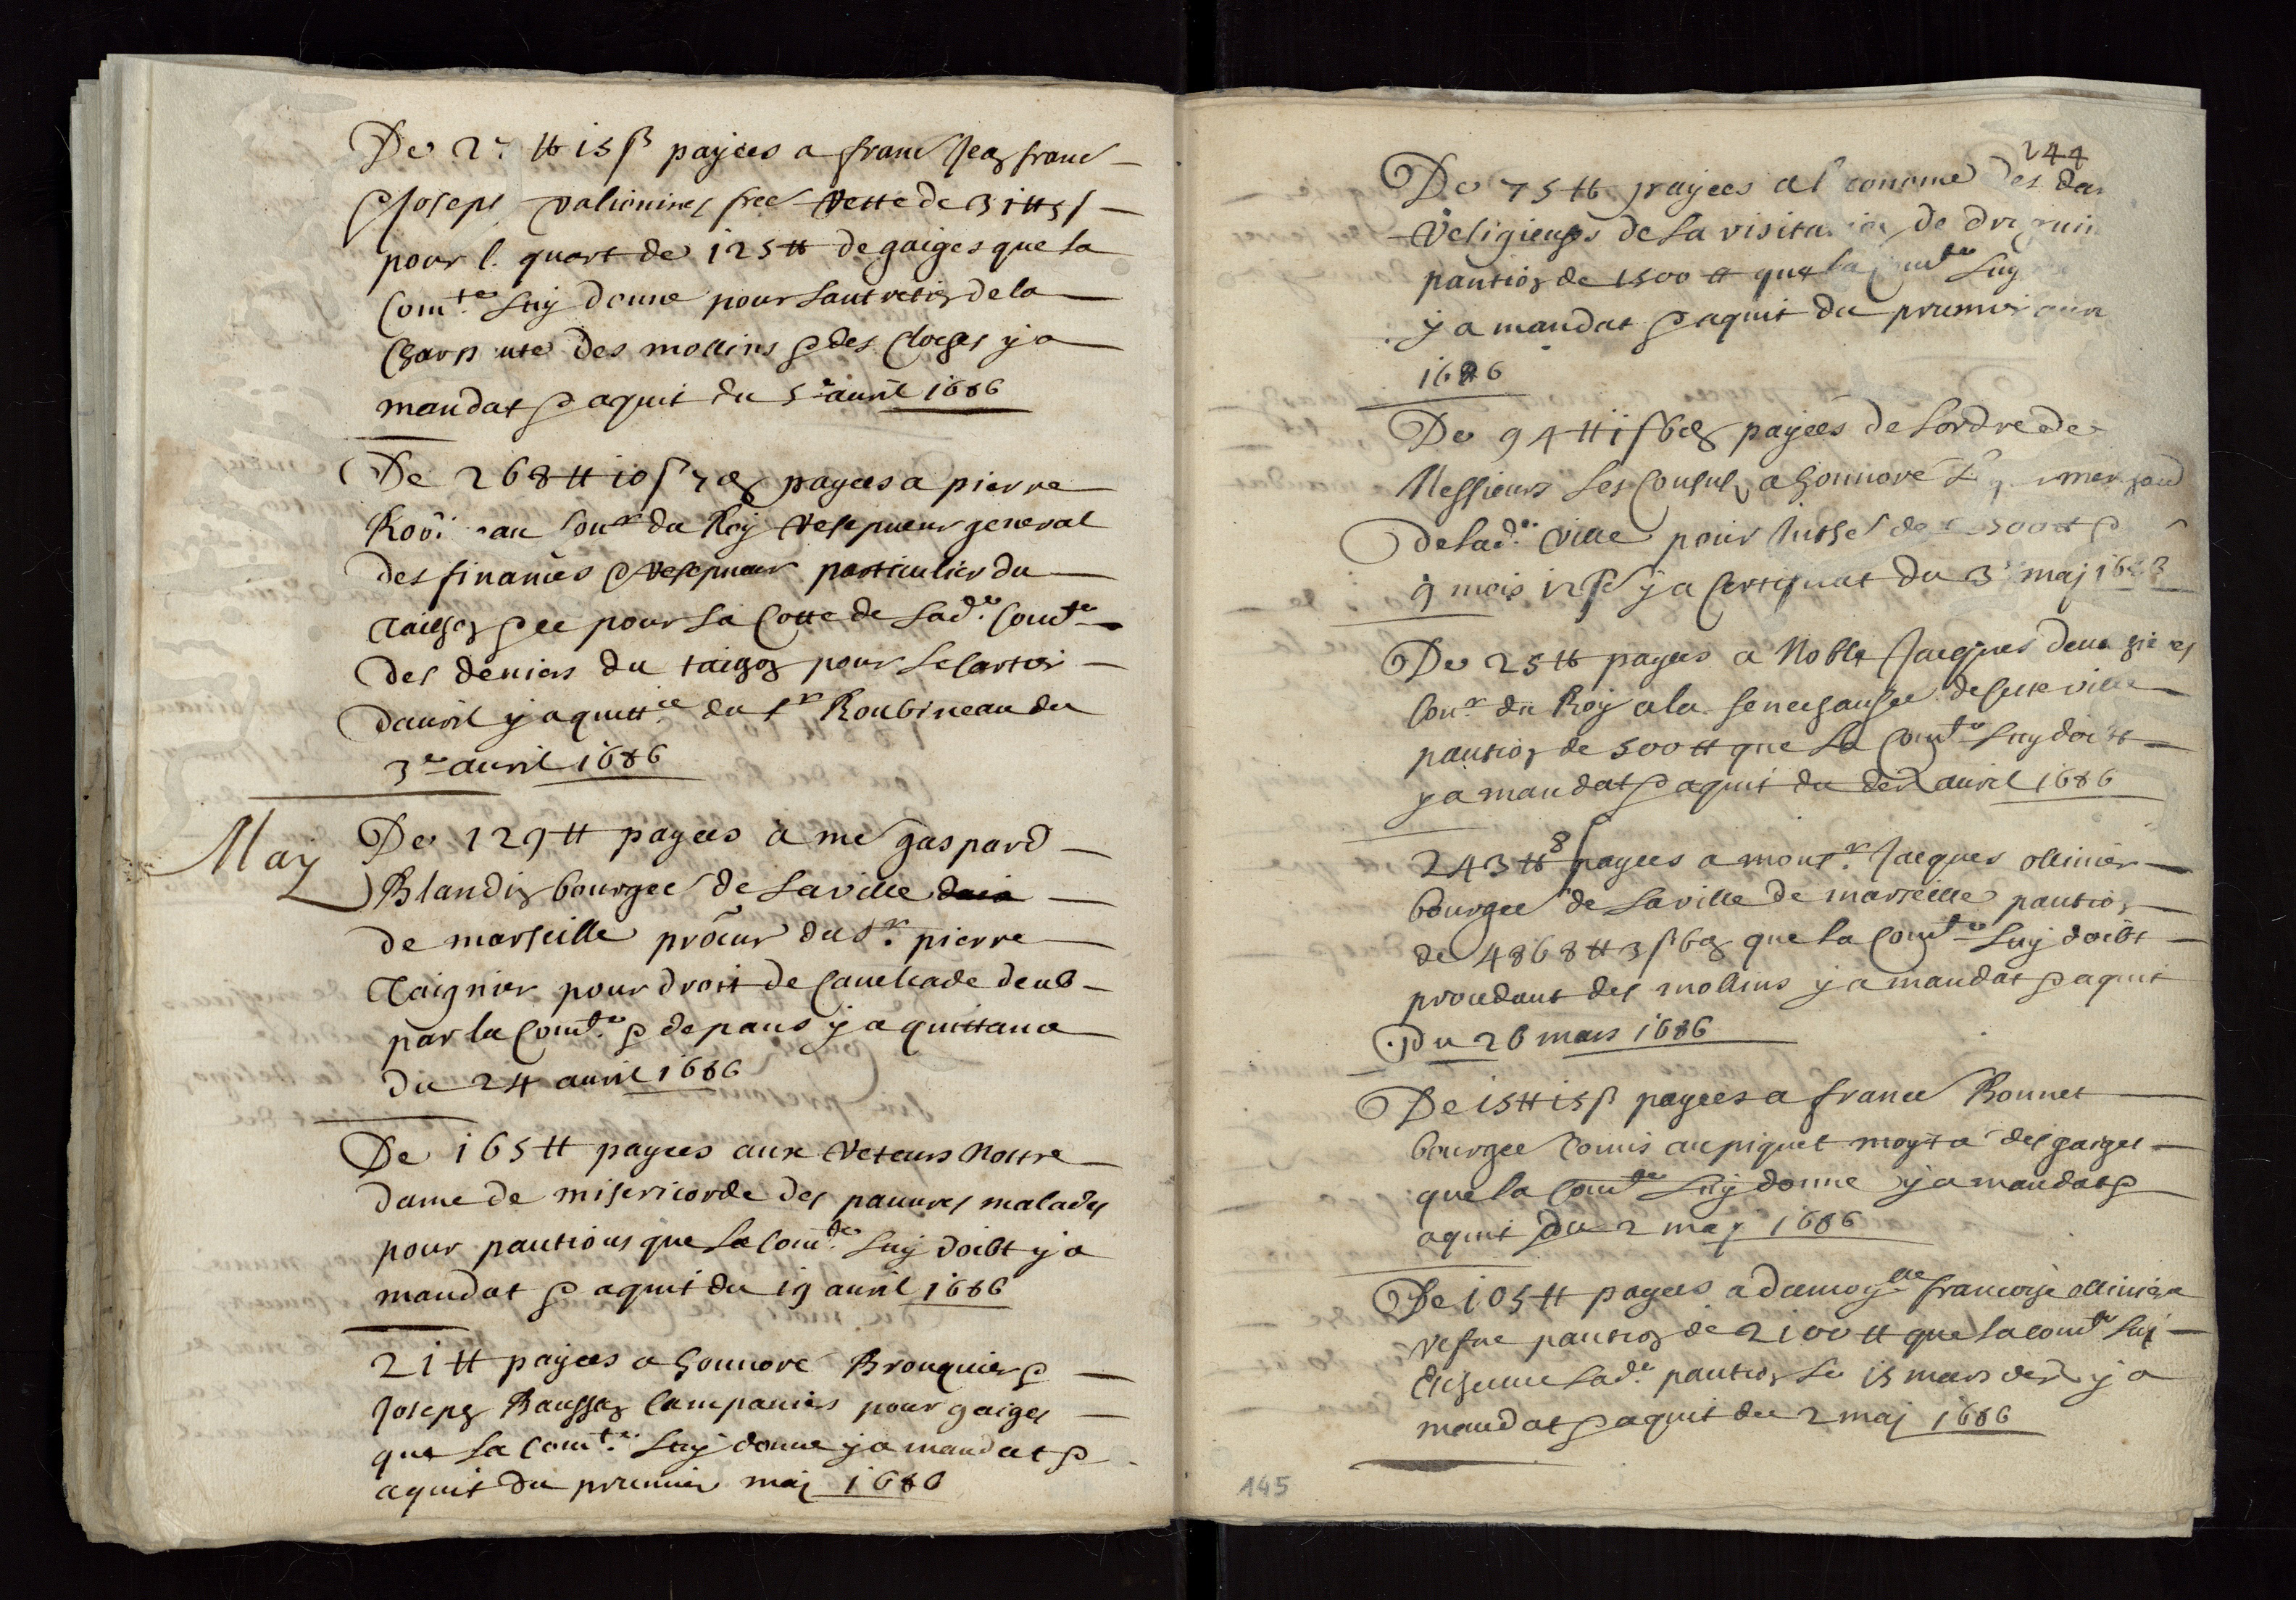 De 27 ₶ 15 ß payées a franc Jean franc
& Joseph valionines free reste de 31 ₶ 5 s
pour l. quart de 125 ₶ de gaiges que la
Com.te Luy donne pour Lantretien de la
des mollins & des cloches y a
mandat & aquit du 5e auril 1686
De 268 ₶ 10 s 7 d payees a pierre
au Con.er du Roy Recepueur general
des finances & Recepueur particulier du
Taillon & ce pour La Cotte de Lad.e Com.te
des deniers du taihon pour Le Cartier
dauril y a quitt.ce du s.r Roubineau du
3e auril 1686
May
De 129 ₶ payees a me gaspard
Blandin bourgee de La ville
de marseille procur du S.r pierre
Taignier pour droit de Caualcade deub
par la Com.te & depans y a quittance
du 24 auril 1686
De 165 ₶ payees aux Reteurs Nostre
dame de misericorde des pauures malades
pour pantions que La Com.te Luy doibt y a
mandat & aquit du 19 auril 1686
21 ₶ payees a honnore Brouquier &
Joseph Baussan Campaniers pour gaiges
que La Com.te Luy donne y a mandat &
aquit du prumier maj 1686
244
De 75 ₶ payees a l conome des da
Religieuses de La visita de dr
pantion de 1500 ₶ que la Com.te Luy
y a mandat & aquit du prumier
1686
De 94 ₶ 1 s 6 d payees de Lordre de
Messieurs Les Consuls a honnore
De Lad.e ville pour de 500 ₶ &
9 mois 12 y a Certifficat du 3 maj
De 25 ₶ payees a Noble Jacques
Con.er du Roy a la senechausee de Cette ville
pantion de 500 ₶ que La Com.te Luy doibt
y a mandat & aquit du der auril 1686
243 ₶ 8 s payees a mons.r Jacques ollivier
bourgee de La ville de marseille pantion
de 4868 ₶ 3 s 6 d que la Com.te Luy doibt
procedant des mollins y a mandat & aquit
Du 26 mars 1686
De 15 ₶ 15 ß payees a france Bonnet
bourgee Comis au piquet moytie des gaiges
que la Com.te Luy donne y a mandat &
aquit du 2 maj 1686
De 105 ₶ payees a damoy.lle francoise olliviere
vefue pantion de 2100 ₶ que la Com.te Luy
Lad.e pantion Le 15 mars der y a
mandat & aquit du 2 maj 1686
145